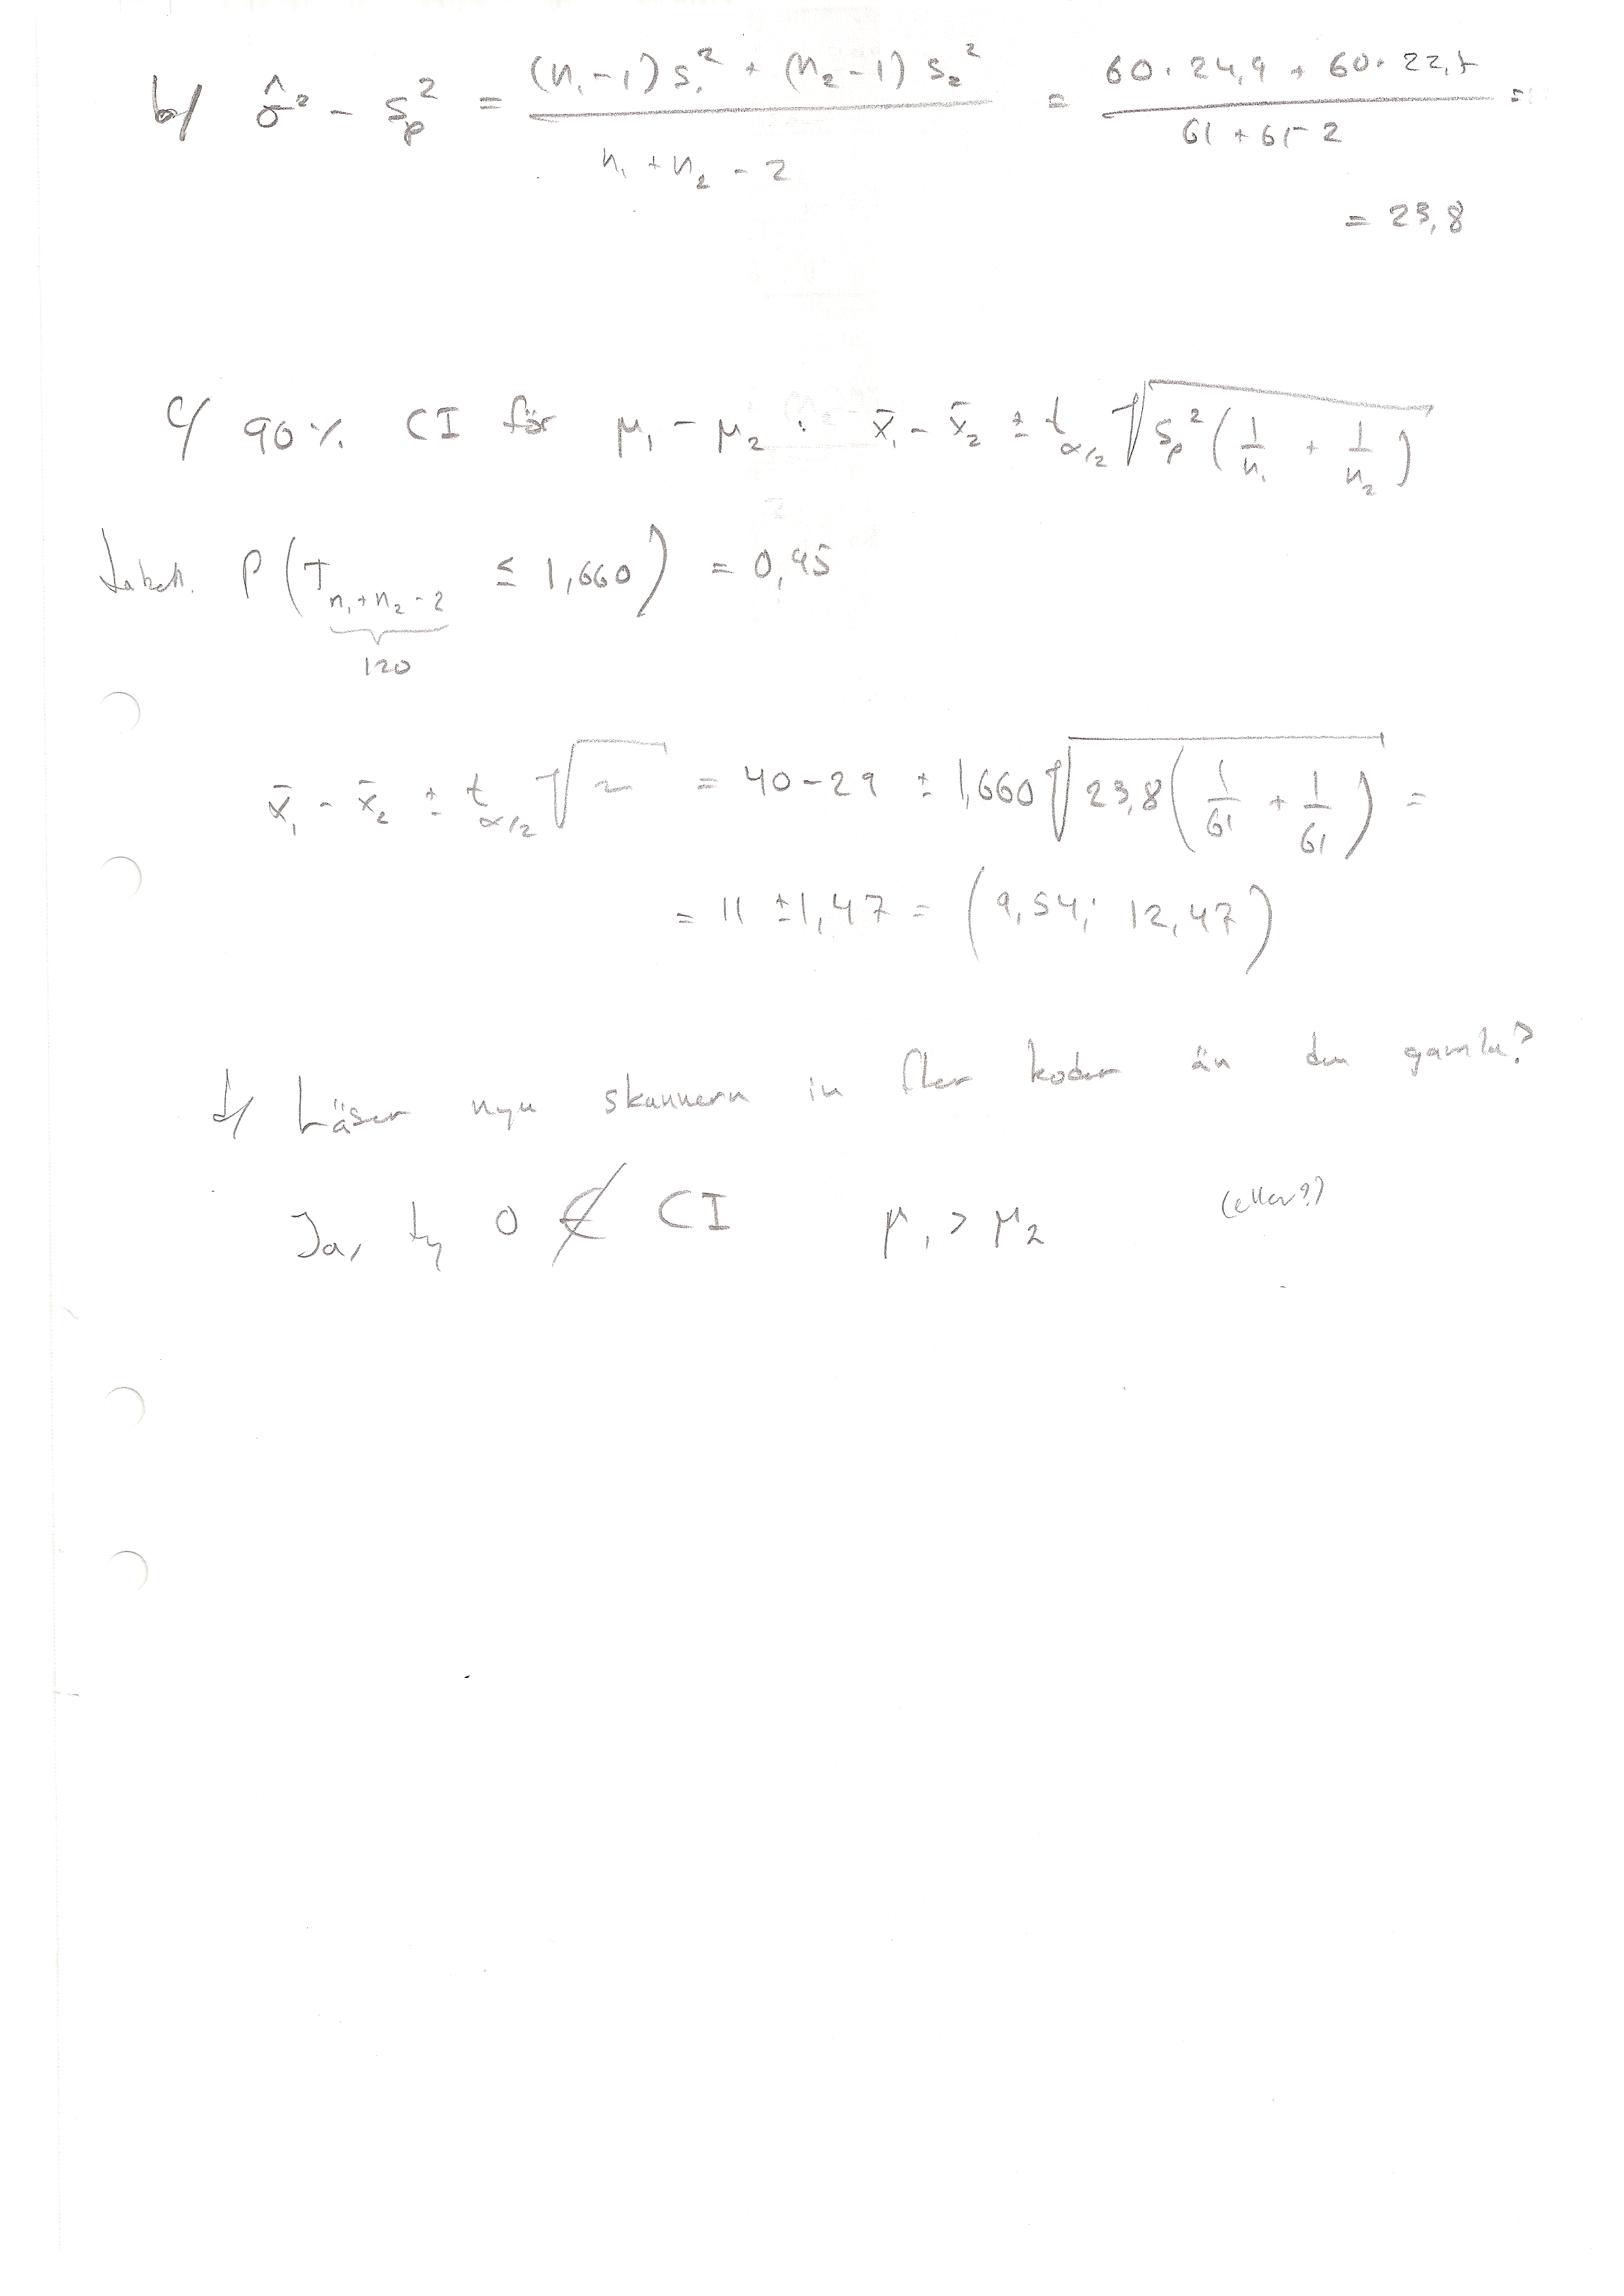 b/ σ̂² - s_p² = ((n₁-1)s₁² + (n₂-1)s₂²)/(n₁+n₂-2) = (60·24,9 + 60·22,7)/(61+61-2) =
= 23,8
c/ 90% CI för μ₁ - μ₂ : x̄₁ - x̄₂ ± t_{α/2} √(s_p²(1/n₁ + 1/n₂))
tabell. P(T_{n₁+n₂-2} ≤ 1,660) = 0,95
120
x̄₁ - x̄₂ ± t_{α/2} √~ = 40-29 ± 1,660√(23,8(1/61 + 1/61)) =
= 11 ± 1,47 = (9,54; 12,47)
d/ Läser nya skannern in fler koder än den gamla?
Ja, ty 0 ∉ CI μ₁ > μ₂ (eller?)